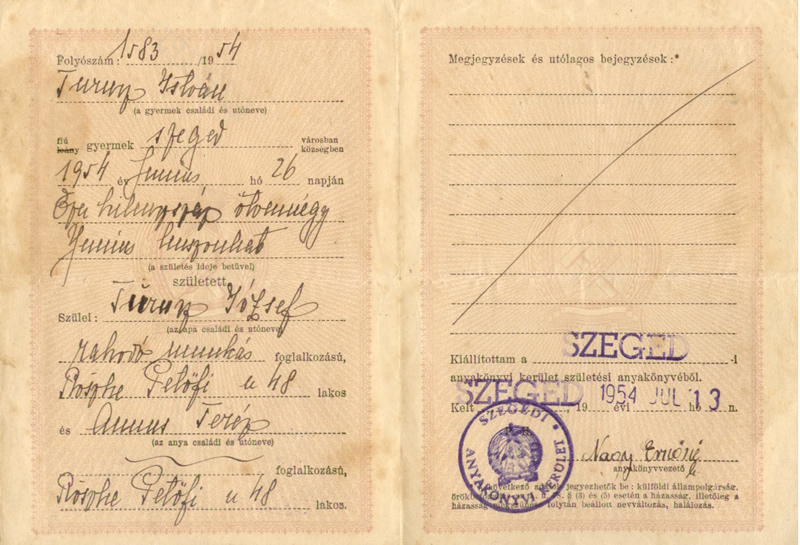 Folyószám: 1583 /19 54
Turuz István
(a gyermek családi és utóneve)
fiú
leány gyermek Szeged városban
községben
1954 év Junius hó 26 napján
Ezer kilencszáz ötvennégy
Junius huszonhat
(a születés ideje betüvel)
született
Szülei: József
(az apa családi és utóneve)
rakodó munkás foglalkozású,
Röszke Petőfi u 48 lakos
és Annus Teréz
(az anya családi és utóneve)
foglalkozású,
Röszke Petőfi u 48 lakos.
Megjegyzések és utólagos bejegyzések:*
Kiállítottam a SZEGED -i
anyakönyvi kerület születési anyakönyvéből.
Kelt SZEGED, 19 1954 évi JUL 13 hó n.
SZEGEDI
ANYAKÖNYVI KERÜLET
Nagy Ernőné
anyakönyvvezető h
következő adatok jegyezhetők be: külföldi állampolgárság.
§ (3) és (5) esetén a házasság, illetőleg a
házasság folytán beállott névváltozás, halálozás.